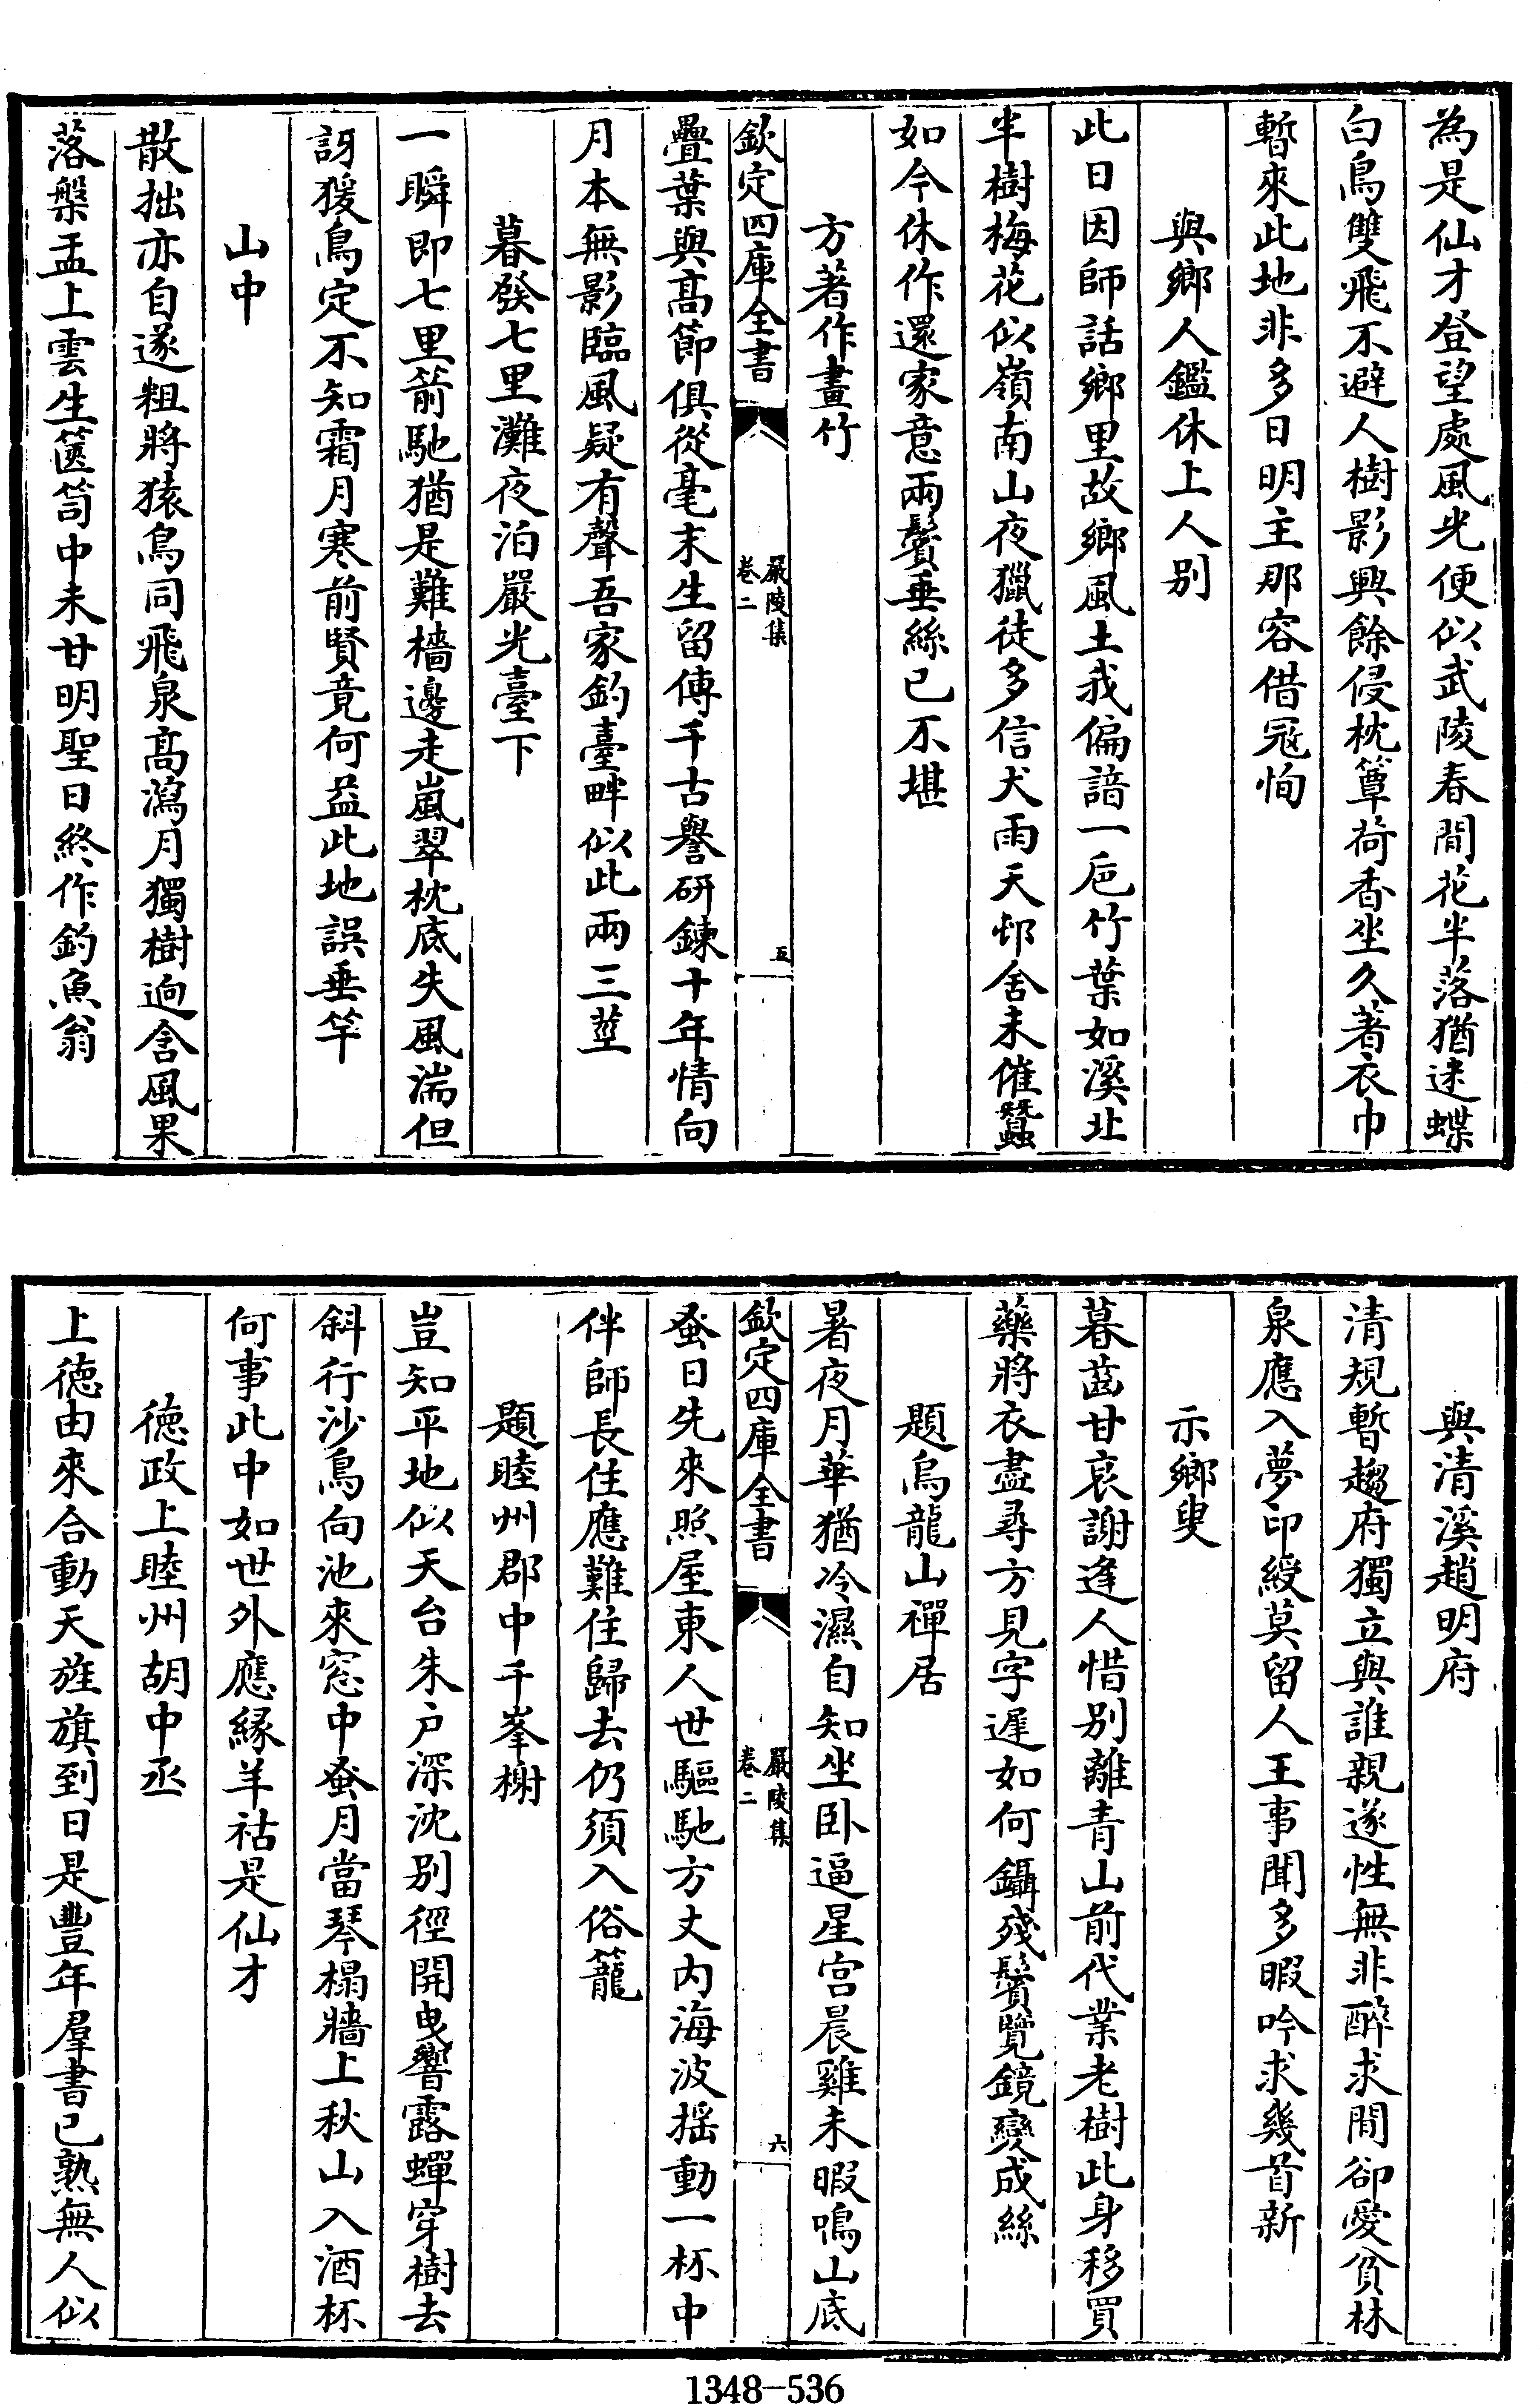 為是仙才登望處風光便似武陵春間花半落猶迷蝶
白鳥雙飛不避人樹影興餘侵枕簟荷香坐久著衣巾
暫來此地非多日明主那容借冦恂
與鄉人鑑休上人别
此日因師話鄉里故鄉風土我偏諳一巵竹葉如溪北
半樹梅花似嶺南山夜獵徒多信犬雨天邨舍未催蠶
如今休作還家意兩鬢垂絲已不堪
方著作畫竹
欽定四庫全書
嚴陵集
卷二
五
疊葉與髙節俱從毫末生留傳千古譽研鍊十年情向
月本無影臨風疑有聲吾家釣臺畔似此兩三莖
暮發七里灘夜泊嚴光臺下
一瞬即七里箭馳猶是難檣邊走嵐翠枕底失風湍但
訝猨鳥定不知霜月寒前賢竟何益此地誤垂竿
山中
散拙亦自遂粗將猿鳥同飛泉髙瀉月獨樹逈含風果
落槃盂上雲生篋笥中未甘明聖日終作釣魚翁
與清溪趙明府
清規暫趨府獨立與誰親遂性無非醉求間卻愛貧林
泉應入夢印綬莫留人王事聞多暇吟求幾首新
示鄉叟
暮齒甘衰謝逢人惜别離青山前代業老樹此身移買
藥將衣盡尋方見字遲如何鑷殘鬢覽鏡變成絲
題烏龍山禪居
暑夜月華猶冷濕自知坐卧逼星宫晨雞未暇鳴山底
欽定四庫全書
嚴陵集
卷二
六
蚤日先來照屋東人世驅馳方丈内海波摇動一杯中
伴師長住應難住歸去仍須入俗籠
題睦州郡中千峯榭
豈知平地似天台朱户深沈别徑開曳響露蟬穿樹去
斜行沙鳥向池來窓中蚤月當琴榻牆上秋山入酒杯
何事此中如世外應縁羊祜是仙才
徳政上睦州胡中丞
上徳由來合動天旌旗到日是豐年羣書已熟無人似
1348-536